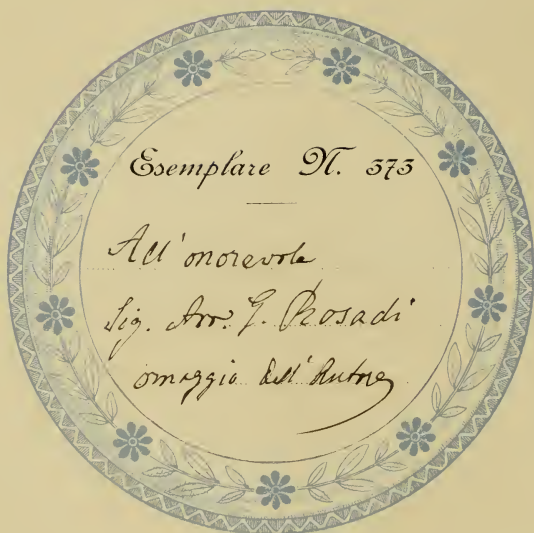 Esemplare N. 373
All' onorevole
Sig. Avv. G. Rosadi
omaggio dell' Autore